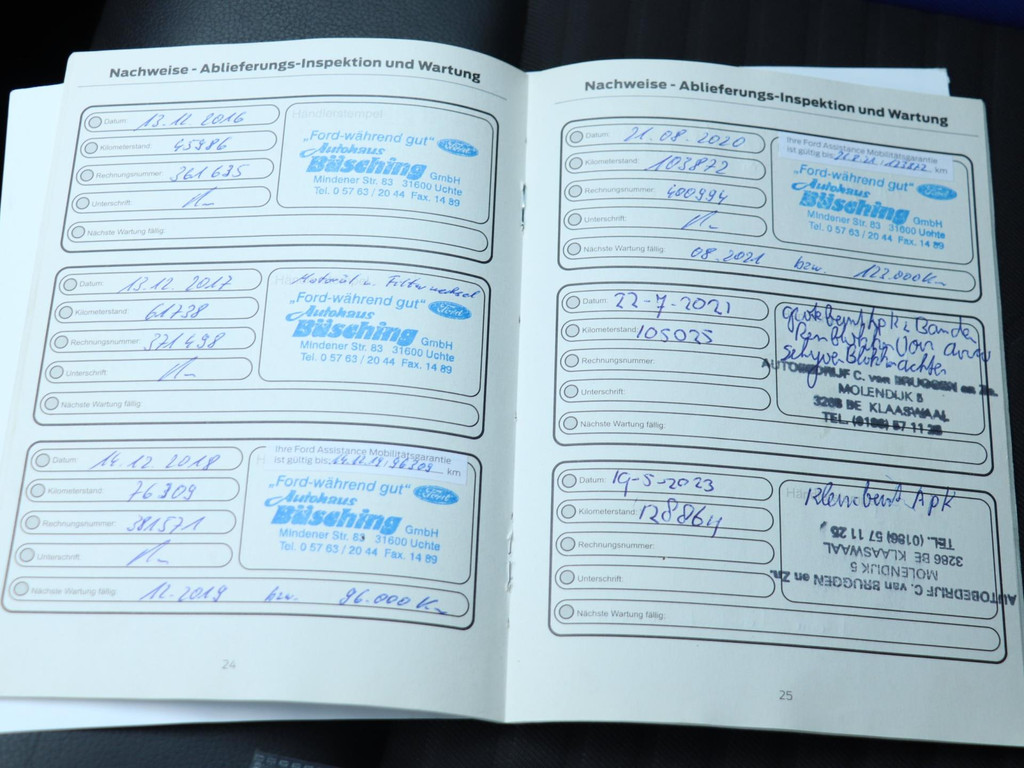 Nachweise - Ablieferungs-Inspektion und Wartung
Datum: 13.12.2016
Kilometerstand: 45986
Rechnungsnummer: 361635
Unterschrift:
Nächste Wartung fällig:
Händlerstempel
„Ford-während gut" Ford
Autohaus
Büsching GmbH
Mindener Str. 83 31600 Uchte
Tel. 0 57 63 / 20 44 Fax. 14 89
Datum: 13.12.2017
Kilometerstand: 61738
Rechnungsnummer: 371498
Unterschrift:
Nächste Wartung fällig:
Motoröl u. Filterwechsel
„Ford-während gut" Ford
Autohaus
Büsching GmbH
Mindener Str. 83 31600 Uchte
Tel. 0 57 63 / 20 44 Fax. 14 89
Datum: 14.12.2018
Kilometerstand: 76309
Rechnungsnummer: 381571
Unterschrift:
Nächste Wartung fällig: 12.2019 bzw. 96.000 Km
Ihre Ford Assistance Mobilitätsgarantie
ist gültig bis 14.12.19 / 96309 km
„Ford-während gut" Ford
Autohaus
Büsching GmbH
Mindener Str. 83 31600 Uchte
Tel. 0 57 63 / 20 44 Fax. 14 89
24
Nachweise - Ablieferungs-Inspektion und Wartung
Datum: 21.08.2020
Kilometerstand: 103872
Rechnungsnummer: 400994
Unterschrift:
Nächste Wartung fällig: 08.2021 bzw. 123.000 Km
Ihre Ford Assistance Mobilitätsgarantie
ist gültig bis km
„Ford-während gut" Ford
Autohaus
Büsching GmbH
Mindener Str. 83 31600 Uchte
Tel. 0 57 63 / 20 44 Fax. 14 89
Datum: 22-7-2021
Kilometerstand: 105025
Rechnungsnummer:
Unterschrift:
Nächste Wartung fällig:
grote beurt Apk 2 Banden
Remblokken Voor
Schyven Blokken achter
AUTOBEDRIJF C. van BRUGGEN en Zn.
MOLENDIJK 5
3286 BE KLAASWAAL
TEL. (0186) 57 11 25
Datum: 19-5-2023
Kilometerstand: 128864
Rechnungsnummer:
Unterschrift:
Nächste Wartung fällig:
Kleine beurt Apk
TEL. (0186) 57 11 25
3286 BE KLAASWAAL
MOLENDIJK 5
AUTOBEDRIJF C. van BRUGGEN en Zn.
25